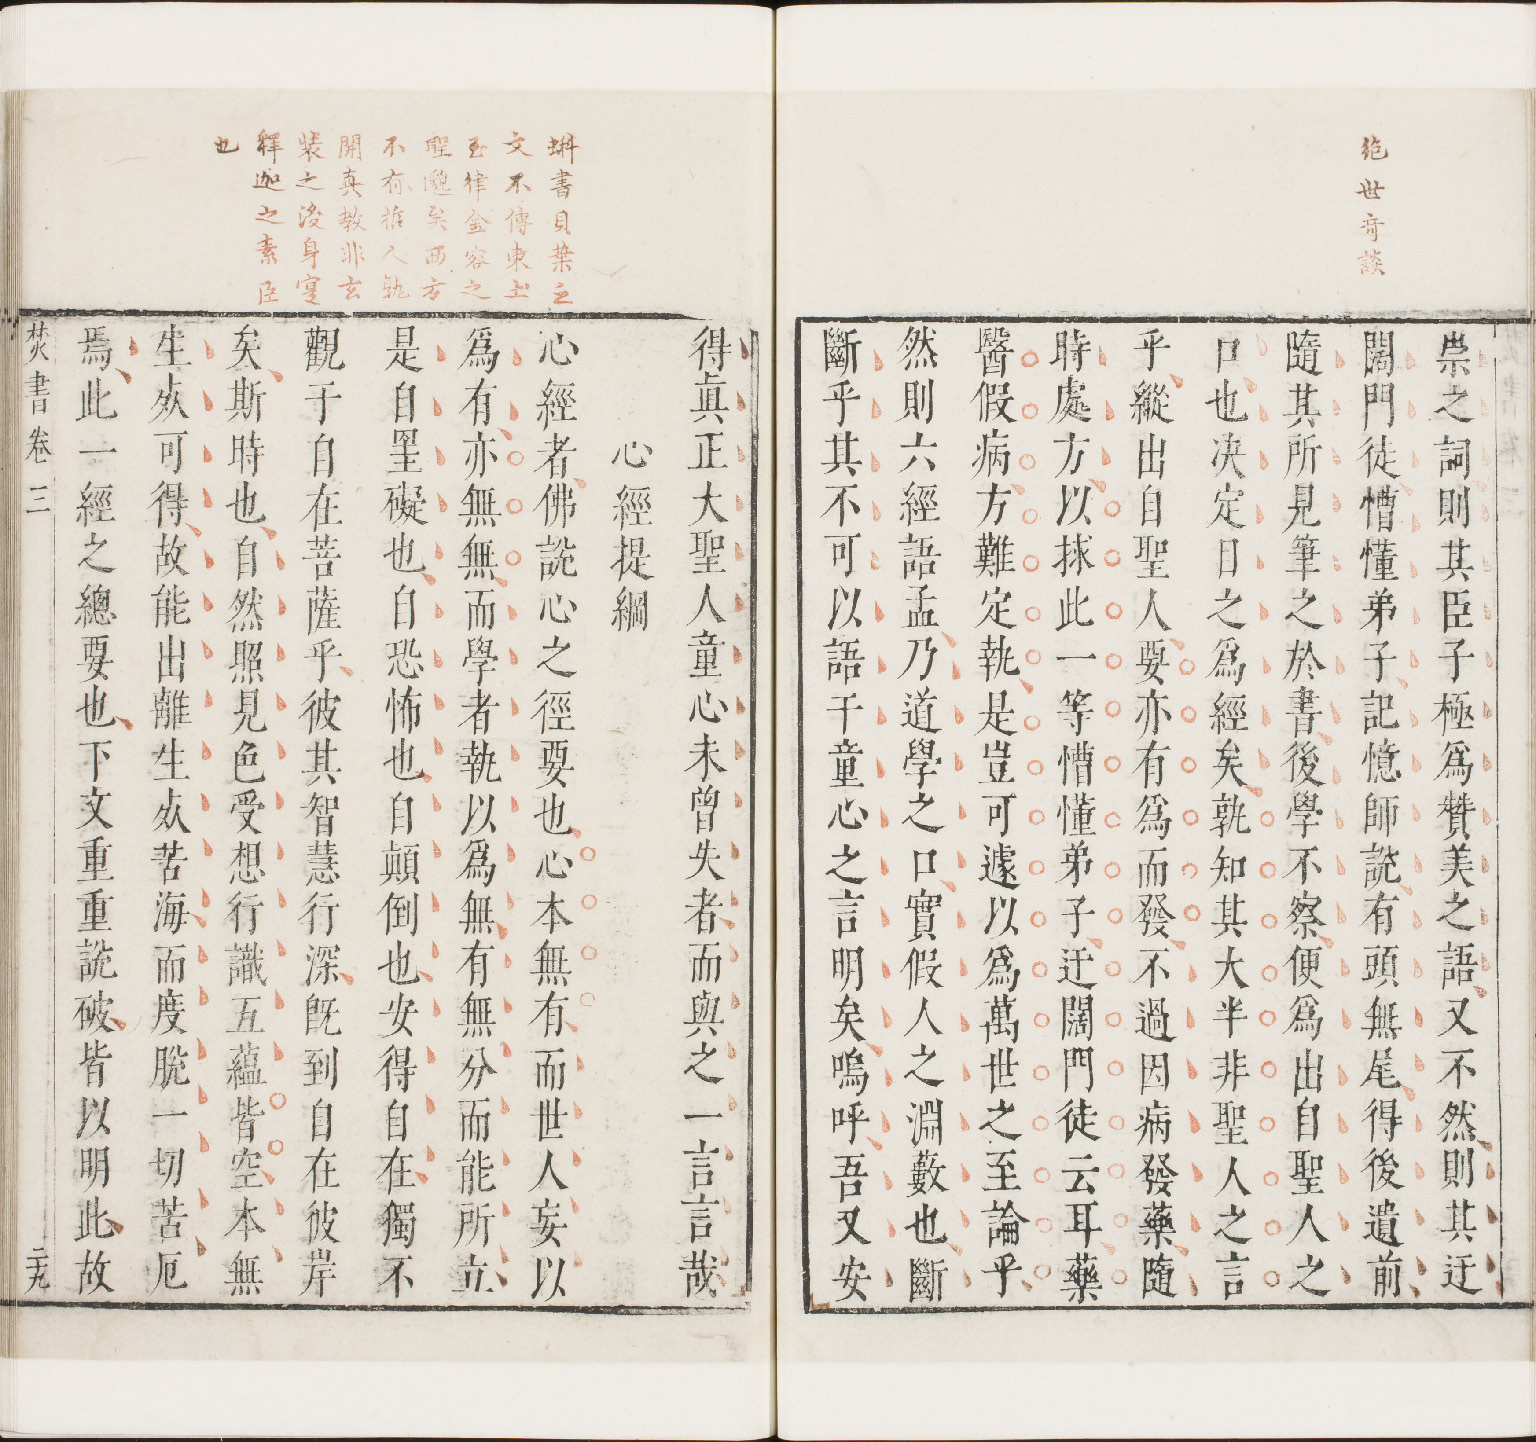 絶世竒談
崇之詞則其臣子極爲贊美之語又不然則其迂
闊門徒懵懂弟子記憶師說有頭無尾得後遺前
隨其所見筆之於書後學不察便爲出自聖人之
口也决定目之爲經矣孰知其大半非聖人之言
乎縱出自聖人要亦有爲而發不過因病發藥隨
時處方以捄此一等懵懂弟子迂闊門徒云耳藥
醫假病方難定執是豈可遽以爲萬世之至論乎
然則六經語孟乃道學之口實假人之淵藪也斷
斷乎其不可以語于童心之言明矣嗚呼吾又安
蝌書貝葉之
文不傳東土
玉律金容之
聖邈矣西方
不有哲人孰
開真教非玄
裝之後身寔
釋迦之素臣
也
得眞正大聖人童心未曾失者而與之一言言哉
心經提綱
心經者佛說心之徑要也心本無有而世人妄以
爲有亦無無而學者執以爲無有無分而能所立
是自罣礙也自恐怖也自顛倒也安得自在獨不
觀于自在菩薩乎彼其智慧行深旣到自在彼岸
矣斯時也自然照見色受想行識五蘊皆空本無
生死可得故能出離生死苦海而度脫一切苦厄
焉此一經之總要也下文重重說破皆以明此故
焚書卷三
二十九